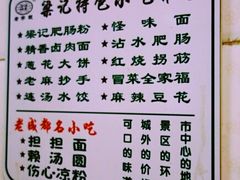 梁记特色小吃
梁记肥肠粉
怪味面
精香卤肉面
沾水肥肠
葱花大饼
红烧拐筋
老麻抄手
冒菜全家福
莲汤水饺
麻辣豆花
老成都名小吃
担担面
赖汤圆
伤心凉粉
市中心的地
景区的环
城外的价
可口的味